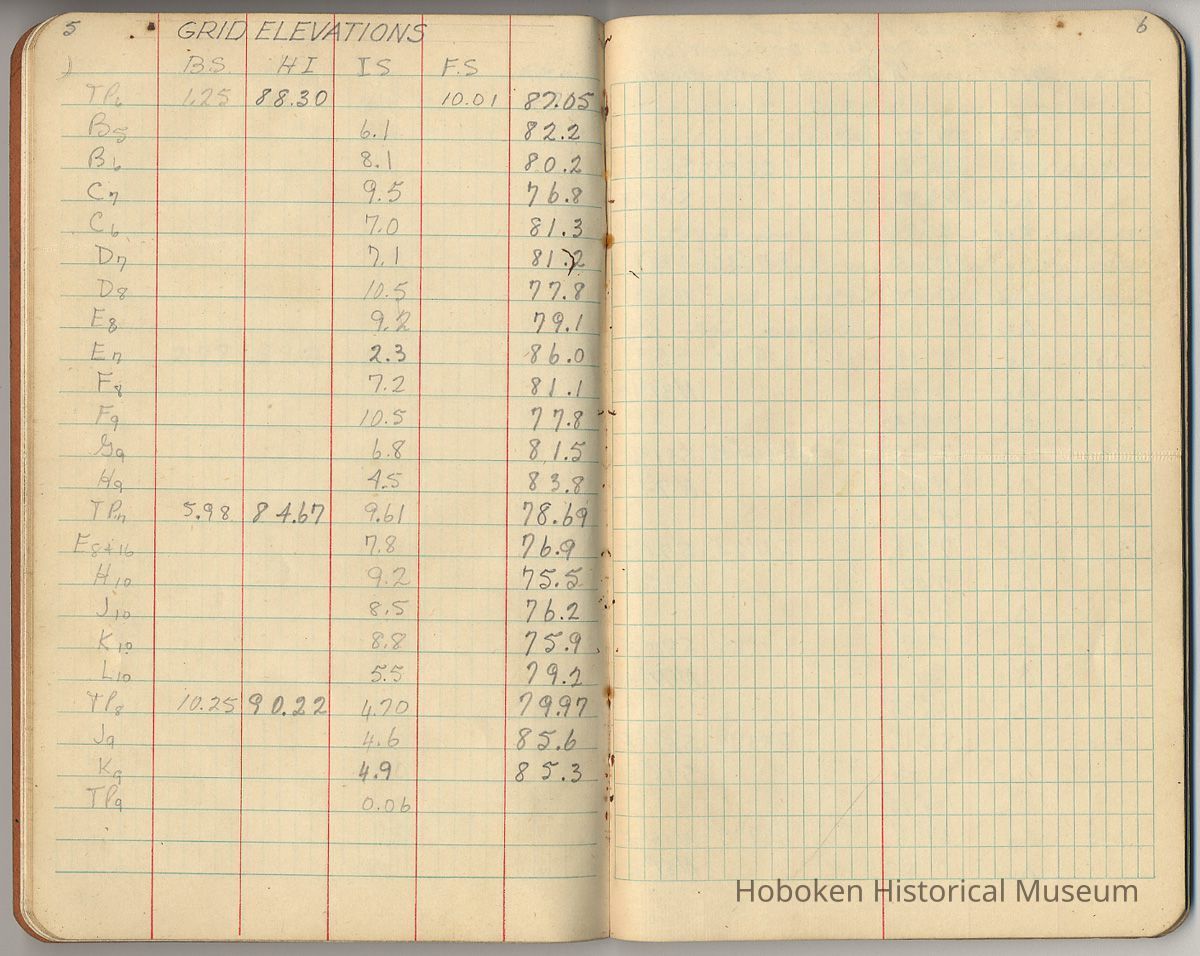 5
GRID ELEVATIONS
B.S. HI IS F.S
TP6 1.25 88.30 10.01 87.05
B5 6.1 82.2
B6 8.1 80.2
C7 9.5 76.8
C6 7.0 81.3
D7 7.1 81.2
D8 10.5 77.8
E8 9.2 79.1
E7 2.3 86.0
F8 7.2 81.1
F9 10.5 77.8
G9 6.8 81.5
H9 4.5 83.8
TP7 5.98 84.67 9.61 78.69
E8+16 7.8 76.9
H10 9.2 75.5
J10 8.5 76.2
K10 8.8 75.9
L10 5.5 79.2
TP8 10.25 90.22 4.70 79.97
J9 4.6 85.6
K9 4.9 85.3
TP9 0.06
6
Hoboken Historical Museum